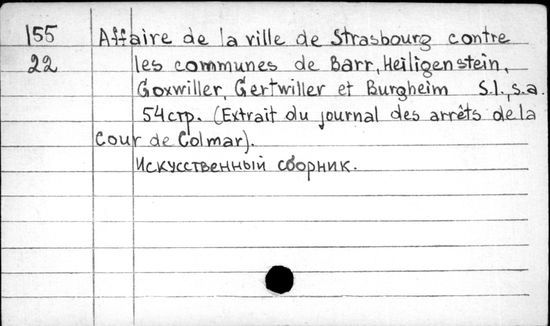 155 Affaire de la ville de Strasbourg contre
22 les communes de Barr, Heiligenstein,
Goxwiller, Gertwiller et Burgheim S.l., s.a.
54 стр. (Extrait du journal des arrêts de la
Cour de Colmar).
Искусственный сборник.